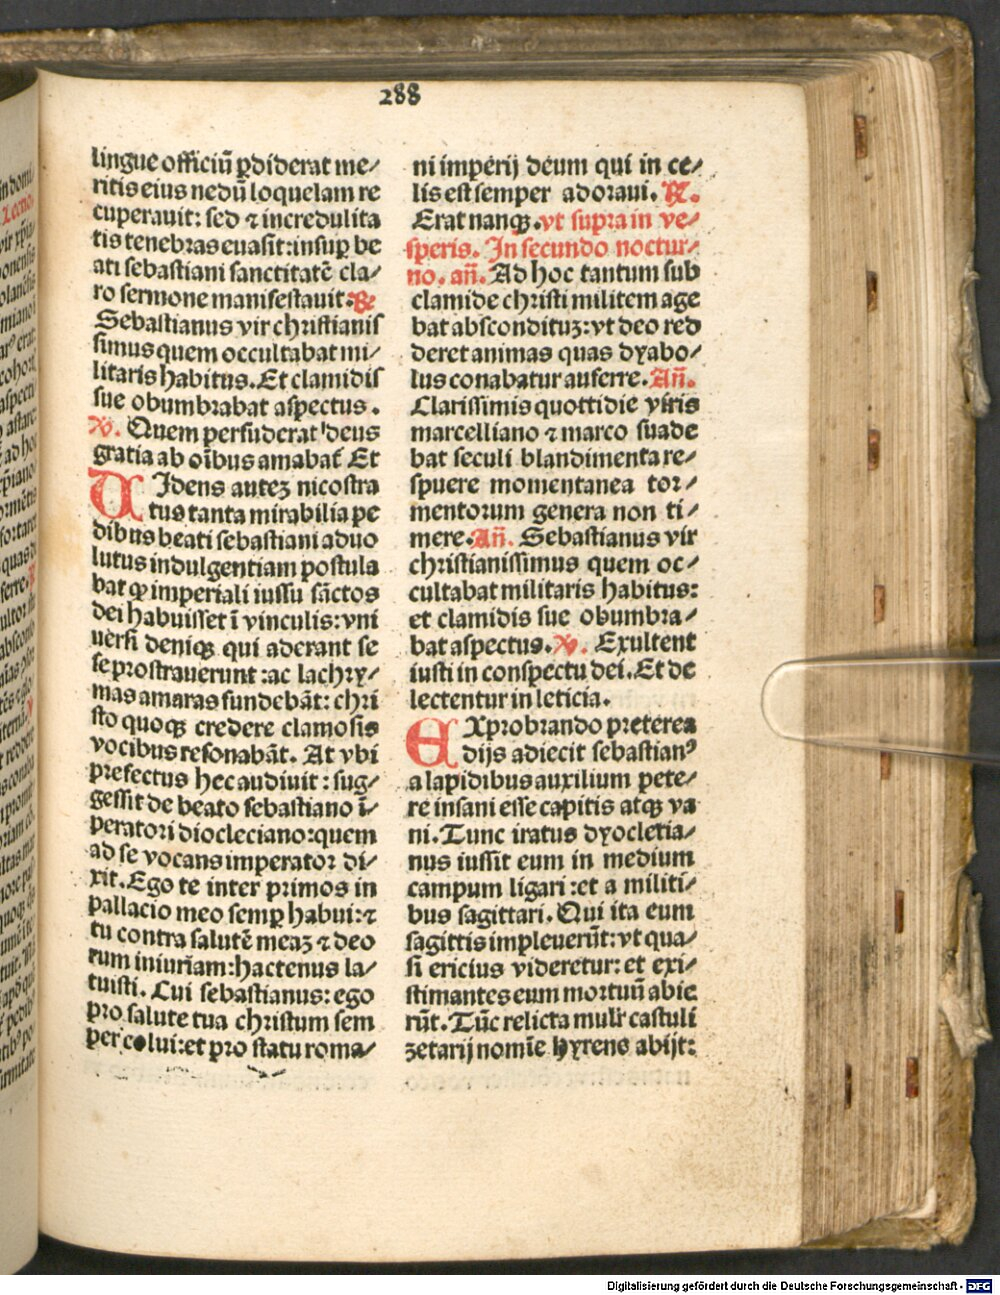 288
lingue officiū ꝑdiderat me⸗
ritis eius nedū loquelam re
cuperauit: sed ⁊ incredulita
tis tenebras euasit: insuꝑ be
ati sebastiani sanctitatē cla⸗
ro sermone manifestauit. ℞
Sebastianus vir christianis
simus quem occultabat mi⸗
litaris habitus. Et clamidis
sue obumbrabat aspectus.
℣. Quem perfuderat deus
gratia ab oībus amabat̄ Et
UIdens auteꝫ nicostra
tus tanta mirabilia pe
dibus beati sebastiani aduo
lutus indulgentiam postula
bat ꝙ imperiali iussu sāctos
dei habuisset ī vinculis: vni
uersi deniqꝫ qui aderant se
se prostrauerunt: ac lachry⸗
mas amaras fundebāt: chri
sto quoqꝫ credere clamosis
vocibus resonabāt. At vbi
prefectus hec audiuit: sug⸗
gessit de beato sebastiano ī⸗
peratori diocleciano: quem
ad se vocans imperator di⸗
xit. Ego te inter primos in
pallacio meo semꝑ habui: ⁊
tu contra salutē meaꝫ ⁊ deo
rum iniuriam: hactenus la⸗
tuisti. Cui sebastianus: ego
pro salute tua christum sem
per colui: et pro statu roma⸗
ni imperij deum qui in ce⸗
lis est semper adoraui. ℞.
Erat nanqꝫ. vt supra in ve⸗
speris. In secundo noctur⸗
no. añ. Ad hoc tantum sub
clamide christi militem age
bat abscondituꝫ: vt deo red
deret animas quas dyabo⸗
lus conabatur auferre. Añ.
Clarissimis quottidie viris
marcelliano ⁊ marco suade
bat seculi blandimenta re⸗
spuere momentanea tor⸗
mentorum genera non ti⸗
mere. Añ. Sebastianus vir
christianissimus quem oc⸗
cultabat militaris habitus:
et clamidis sue obumbra⸗
bat aspectus. ℣. Exultent
iusti in conspectu dei. Et de
lectentur in leticia.
EXprobrando preterea
dijs adiecit sebastianꝰ
a lapidibus auxilium pete⸗
re insani esse capitis atqꝫ va
ni. Tunc iratus dyocletia⸗
nus iussit eum in medium
campum ligari: et a militi⸗
bus sagittari. Qui ita eum
sagittis impleuerūt: vt qua⸗
si ericius videretur: et exi⸗
stimantes eum mortuū abie
rūt. Tūc relicta mulr̄ castuli
zetarij nomīe hyrens abijt:
Digitalisierung gefördert durch die Deutsche Forschungsgemeinschaft - DFG